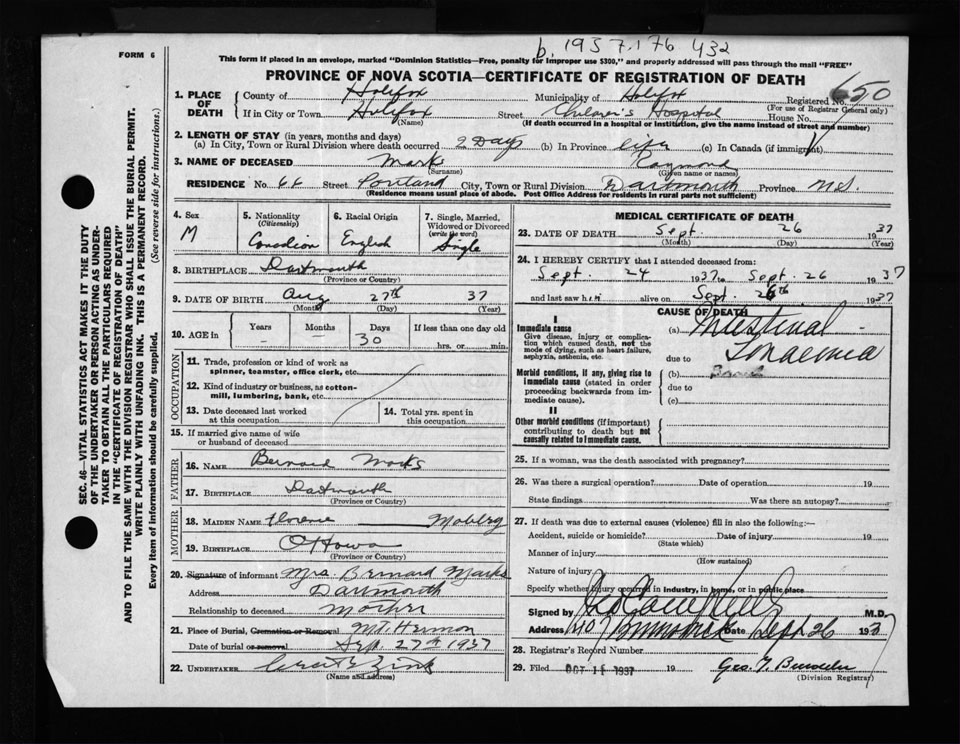 b. 1937.176 432
FORM 6
This form if placed in an envelope, marked "Dominion Statistics—Free, penalty for improper use $300," and properly addressed will pass through the mail "FREE"
PROVINCE OF NOVA SCOTIA—CERTIFICATE OF REGISTRATION OF DEATH
1. PLACE OF DEATH County of Halifax Municipality of Halifax Registered No. 650
(For use of Registrar General only)
If in City or Town Halifax Street Children's Hospital House No.
(Name) (If death occurred in a hospital or institution, give the name instead of street and number)
2. LENGTH OF STAY (in years, months and days)
(a) In City, Town or Rural Division where death occurred 2 Days (b) In Province life (c) In Canada (if immigrant)
3. NAME OF DECEASED Marks Raymond
(Surname) (Given name or names)
RESIDENCE No. 66 Street Portland City, Town or Rural Division Dartmouth Province N.S
(Residence means usual place of abode. Post Office Address for residents in rural parts not sufficient)
4. Sex M
5. Nationality (Citizenship) Canadian
6. Racial Origin English
7. Single, Married, Widowed or Divorced (write the word) Single
8. BIRTHPLACE Dartmouth
(Province or Country)
9. DATE OF BIRTH Aug 27th 37
(Month) (Day) (Year)
10. AGE in Years – Months – Days 30 If less than one day old
hrs. or min.
OCCUPATION
11. Trade, profession or kind of work as spinner, teamster, office clerk, etc.
12. Kind of industry or business, as cotton-mill, lumbering, bank, etc.
13. Date deceased last worked at this occupation
14. Total yrs. spent in this occupation
15. If married give name of wife or husband of deceased
FATHER
16. NAME Bernard Marks
17. BIRTHPLACE Dartmouth
(Province or Country)
MOTHER
18. MAIDEN NAME Florence Moberg
19. BIRTHPLACE Ottawa
(Province or Country)
20. Signature of informant Mrs. Bernard Marks
Address Dartmouth
Relationship to deceased Mother
21. Place of Burial, Cremation or Removal Mt. Hermon
Date of burial or removal Sep. 27th 1937
22. UNDERTAKER Zink
(Name and address)
MEDICAL CERTIFICATE OF DEATH
23. DATE OF DEATH Sept. 26 1937
(Month) (Day) (Year)
24. I HEREBY CERTIFY that I attended deceased from:
Sept. 24 1937 to Sept. 26 1937
and last saw him alive on Sept. 26th 1937
CAUSE OF DEATH
I
Immediate cause
Give disease, injury or complication which caused death, not the mode of dying, such as heart failure, asphyxia, asthenia, etc.
(a) Intestinal
due to Toxaemia
Morbid conditions, if any, giving rise to immediate cause (stated in order proceeding backwards from immediate cause).
(b)
due to
(c)
II
Other morbid conditions (if important) contributing to death but not causally related to immediate cause.
25. If a woman, was the death associated with pregnancy?
26. Was there a surgical operation? Date of operation 19
State findings Was there an autopsy?
27. If death was due to external causes (violence) fill in also the following:—
Accident, suicide or homicide? Date of injury 19
(State which)
Manner of injury
(How sustained)
Nature of injury
Specify whether injury occurred in industry, in home, or in public place
Signed by M.D.
Address Brunswick Date Sept 26 1937
28. Registrar's Record Number
29. Filed OCT 11 1937 19
(Division Registrar)
SEC. 46—VITAL STATISTICS ACT MAKES IT THE DUTY
OF THE UNDERTAKER OR PERSON ACTING AS UNDER-
TAKER TO OBTAIN ALL THE PARTICULARS REQUIRED
IN THE "CERTIFICATE OF REGISTRATION OF DEATH"
AND TO FILE THE SAME WITH THE DIVISION REGISTRAR WHO SHALL ISSUE THE BURIAL PERMIT.
WRITE PLAINLY WITH UNFADING INK. THIS IS A PERMANENT RECORD.
Every item of information should be carefully supplied. (See reverse side for instructions.)